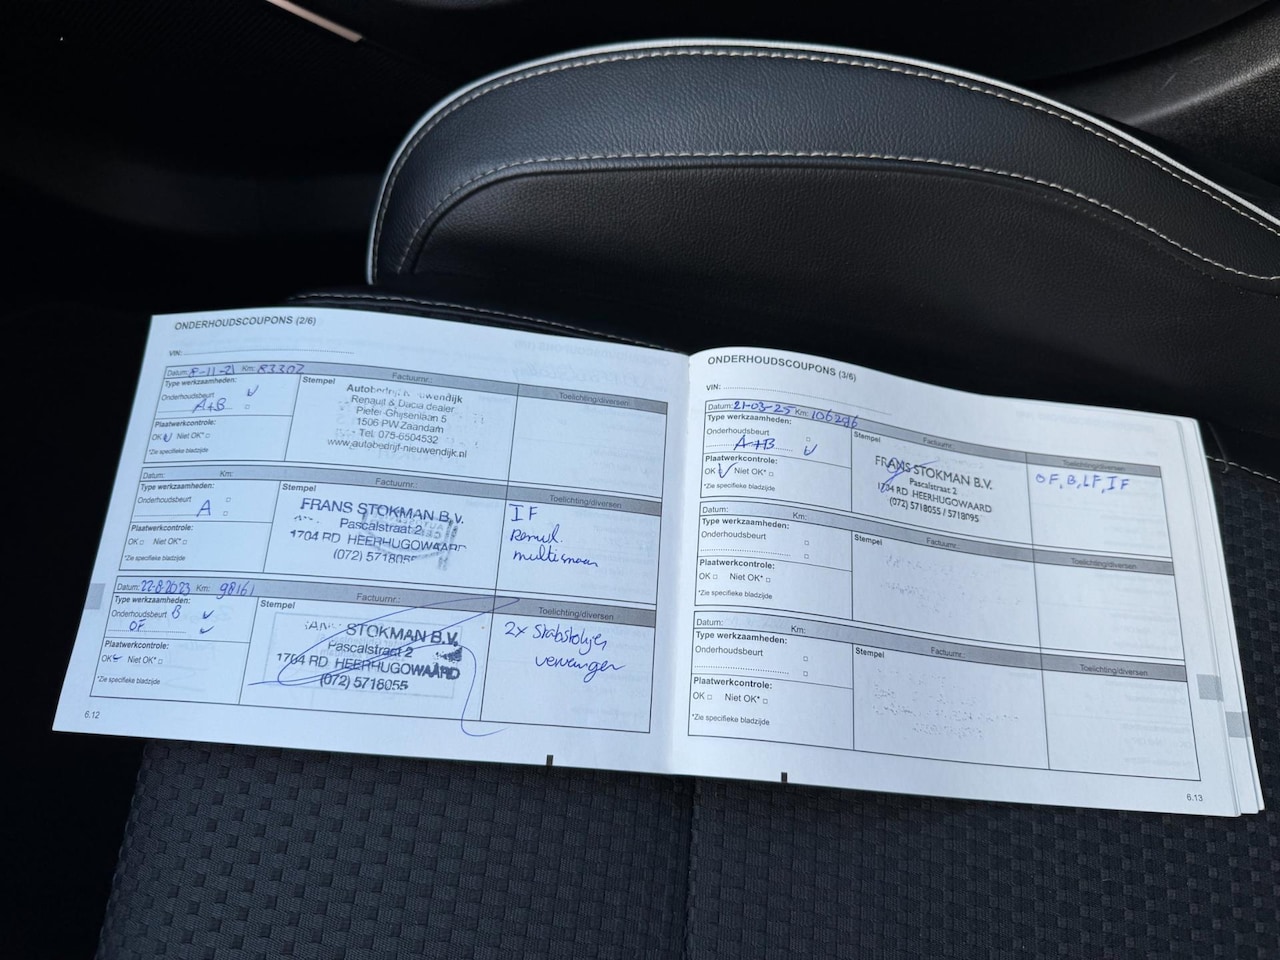 ONDERHOUDSCOUPONS (2/6)
VIN:
Datum: 8-11-21 Km: 83302
Type werkzaamheden:
Onderhoudsbeurt
A+B
Plaatwerkcontrole:
OK Niet OK*
*Zie specifieke bladzijde
Stempel
Factuurnr.:
Renault & Dacia dealer
Pieter Ghijsenlaan 5
1506 PW Zaandam
Tel. 075-6504532
www.autobedrijf-nieuwendijk.nl
Toelichting/diversen
Datum: Km:
Type werkzaamheden:
Onderhoudsbeurt
A
Plaatwerkcontrole:
OK Niet OK*
*Zie specifieke bladzijde
Stempel
Factuurnr.:
FRANS STOKMAN B.V.
Pascalstraat 2
1704 RD HEERHUGOWAARD
(072) 5718055
Toelichting/diversen
IF
Datum: 22-8-2023 Km: 98161
Type werkzaamheden:
Onderhoudsbeurt B
OF
Plaatwerkcontrole:
OK Niet OK*
*Zie specifieke bladzijde
Stempel
Factuurnr.:
STOKMAN B.V.
Pascalstraat 2
1704 RD HEERHUGOWAARD
(072) 5718055
Toelichting/diversen
2x
6.12
ONDERHOUDSCOUPONS (3/6)
VIN:
Datum: 21-03-25 Km: 106286
Type werkzaamheden:
Onderhoudsbeurt
A+B
Plaatwerkcontrole:
OK Niet OK*
*Zie specifieke bladzijde
Stempel
Factuurnr.:
FRANS STOKMAN B.V.
Pascalstraat 2
1704 RD HEERHUGOWAARD
(072) 5718055 / 5718095
Toelichting/diversen
OF, B, LF, IF
Datum: Km:
Type werkzaamheden:
Onderhoudsbeurt
Plaatwerkcontrole:
OK Niet OK*
*Zie specifieke bladzijde
Stempel
Factuurnr.:
Toelichting/diversen
Datum: Km:
Type werkzaamheden:
Onderhoudsbeurt
Plaatwerkcontrole:
OK Niet OK*
*Zie specifieke bladzijde
Stempel
Factuurnr.:
Toelichting/diversen
6.13